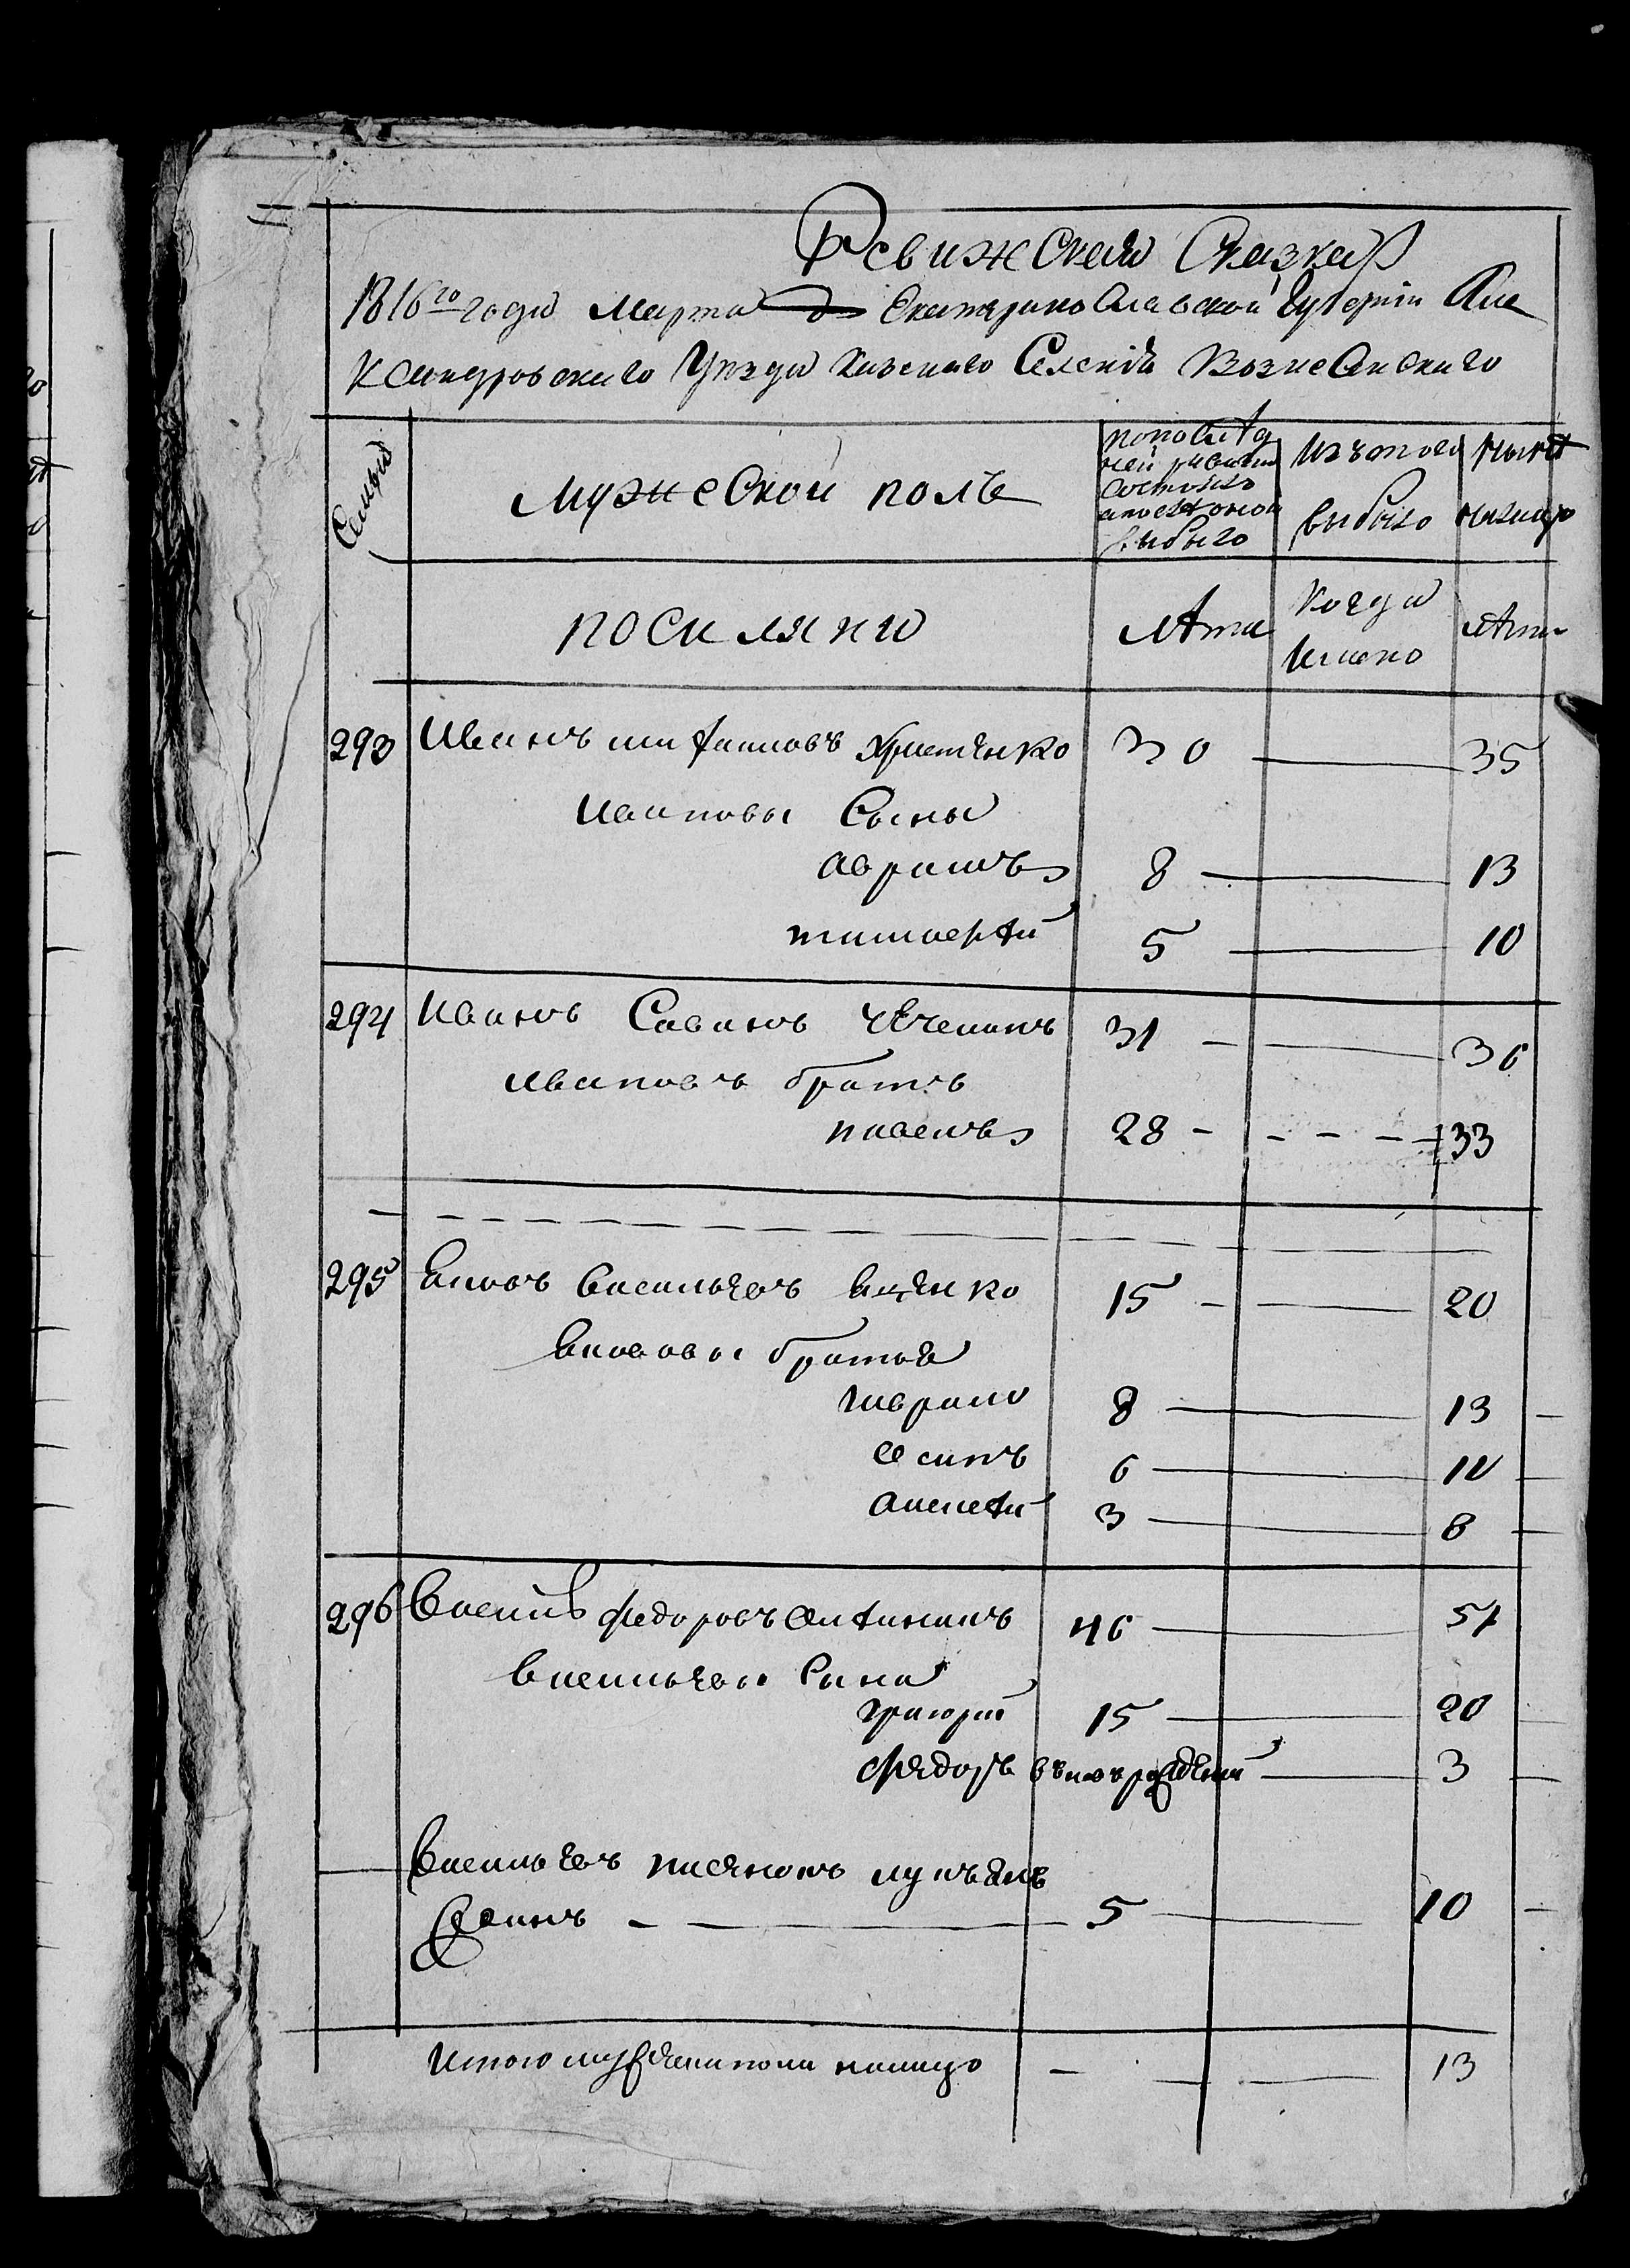 Ревижская Сказка
1816го года Марта Екатеринославской Губернии Але
ксандровскаго Уезда Казенаго Селения Вознесенскаго
Семьи
Мужеской полъ
по последней ревизии состояло и после оной выбыло
Изъ того выбыло
ныне налицо
поселяне
Лета
Когда именно
Лета
293 Иванъ Христенко 30 35
Ивановы Сыны
Аврамъ 8 13
тимоефей 5 10
294 Иванъ Савинъ 31 36
Ивановъ братъ
павелъ 28 33
295 Васильевъ 15 20
братья
гаврило 8 13
Осипъ 6 10
Алексей 3 8
296 Василий Федоровъ 46 51
Васильевы Сына
григорий 15 20
Федоръ вновь рожденой 3
Васильевъ пасынокъ лукьянъ
5 10
Итого мужеска пола налицо 13